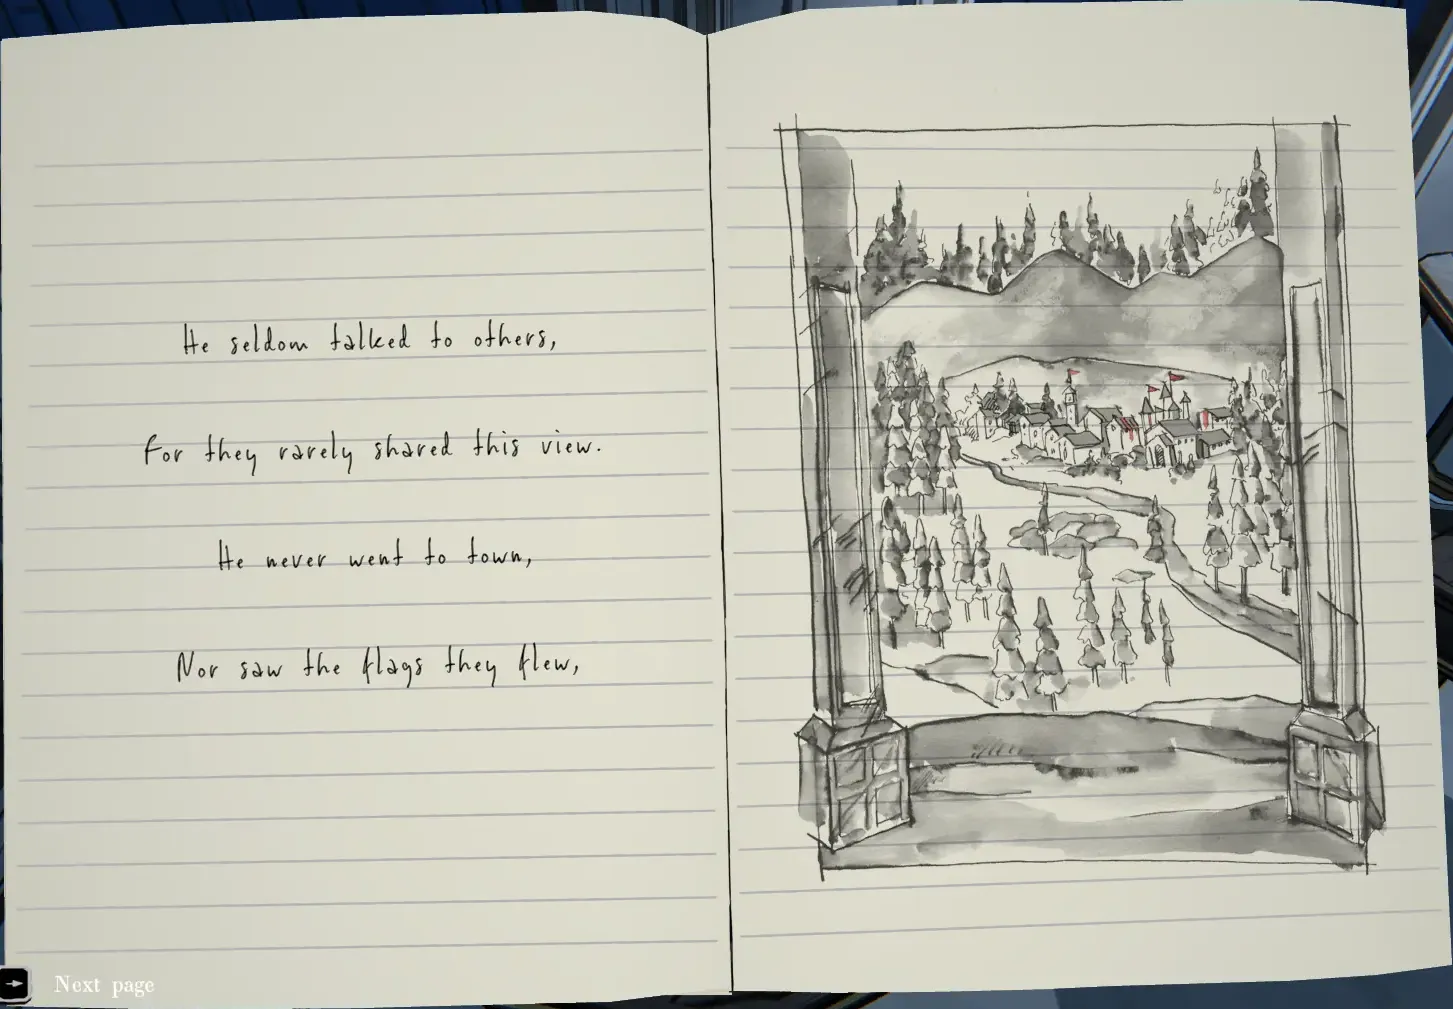 He seldom talked to others,
For they rarely shared this view.
He never went to town,
Nor saw the flags they flew,
Next page